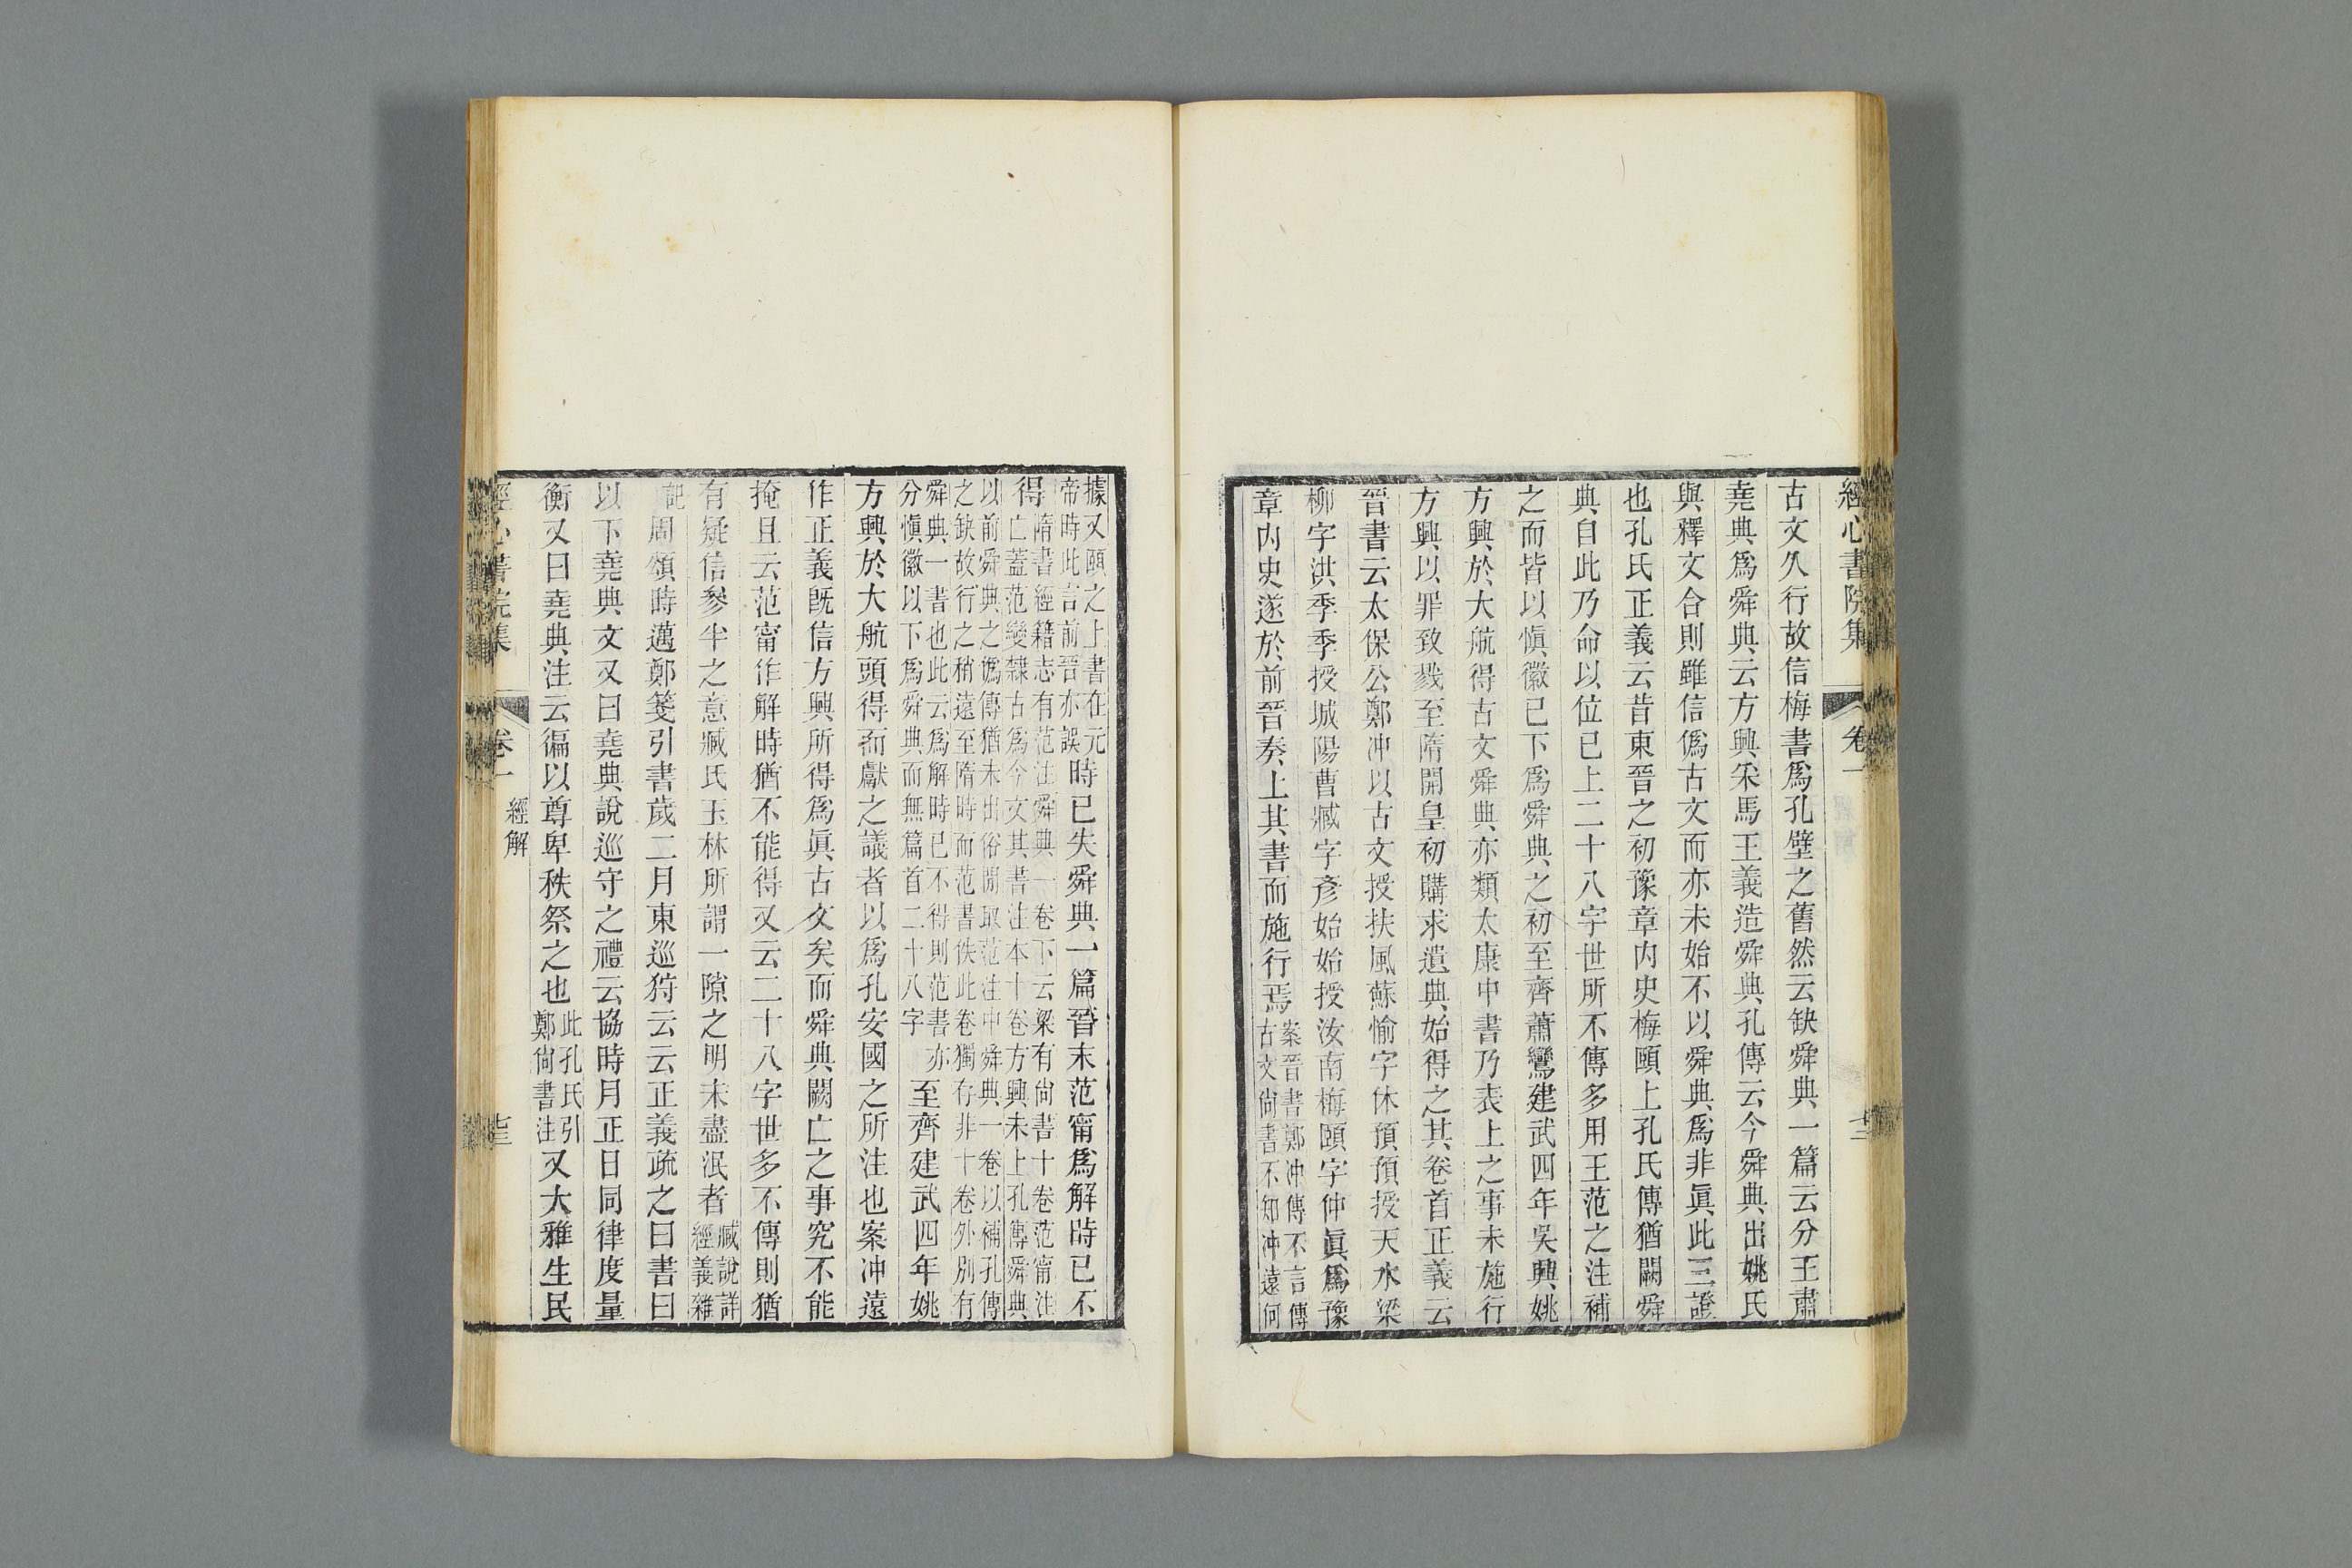 經心書院集 卷一 十二
古文久行故信梅書爲孔壁之舊然云缺舜典一篇云分王肅
堯典爲舜典云方興采馬王義造舜典孔傳云今舜典出姚氏
與釋文合則雖信僞古文而亦未始不以舜典爲非眞此三證
也孔氏正義云昔東晉之初豫章內史梅頤上孔氏傳猶闕舜
典自此乃命以位已上二十八字世所不傳多用王范之注補
之而皆以愼徽已下爲舜典之初至齊蕭鸞建武四年吳興姚
方興於大航得古文舜典亦類太康中書乃表上之事未施行
方興以罪致戮至隋開皇初購求遺典始得之其卷首正義云
晉書云太保公鄭冲以古文授扶風蘇愉字休預預授天水梁
柳字洪季季授城陽曹臧字彥始始授汝南梅頤字仲眞爲豫
章內史遂於前晉奏上其書而施行焉案晉書鄭冲傳不言傳
古文尙書不知冲遠何
據又頤之上書在元
帝時此言前晉亦誤時已失舜典一篇晉末范甯爲解時已不
得隋書經籍志有范注舜典一卷下云梁有尙書十卷范甯注
亡蓋范變隸古爲今文其書注本十卷方興未上孔傳舜典
以前舜典之僞傳猶未出俗閒取范注中舜典一卷以補孔傳
之缺故行之稍遠至隋時而范書佚此卷獨存非十卷外別有
舜典一書也此云爲解時已不得則范書亦
分愼徽以下爲舜典而無篇首二十八字至齊建武四年姚
方興於大航頭得而獻之議者以爲孔安國之所注也案冲遠
作正義旣信方興所得爲眞古文矣而舜典闕亡之事究不能
掩且云范甯作解時猶不能得又云二十八字世多不傳則猶
有疑信參半之意臧氏玉林所謂一隙之明未盡泯者臧說詳
經義雜
記周頌時邁鄭箋引書歲二月東巡狩云云正義疏之曰書曰
以下堯典文又曰堯典說巡守之禮云協時月正日同律度量
衡又曰堯典注云徧以尊卑秩祭之也此孔氏引
鄭尙書注又大雅生民
經心書院集 卷一 經解 十三